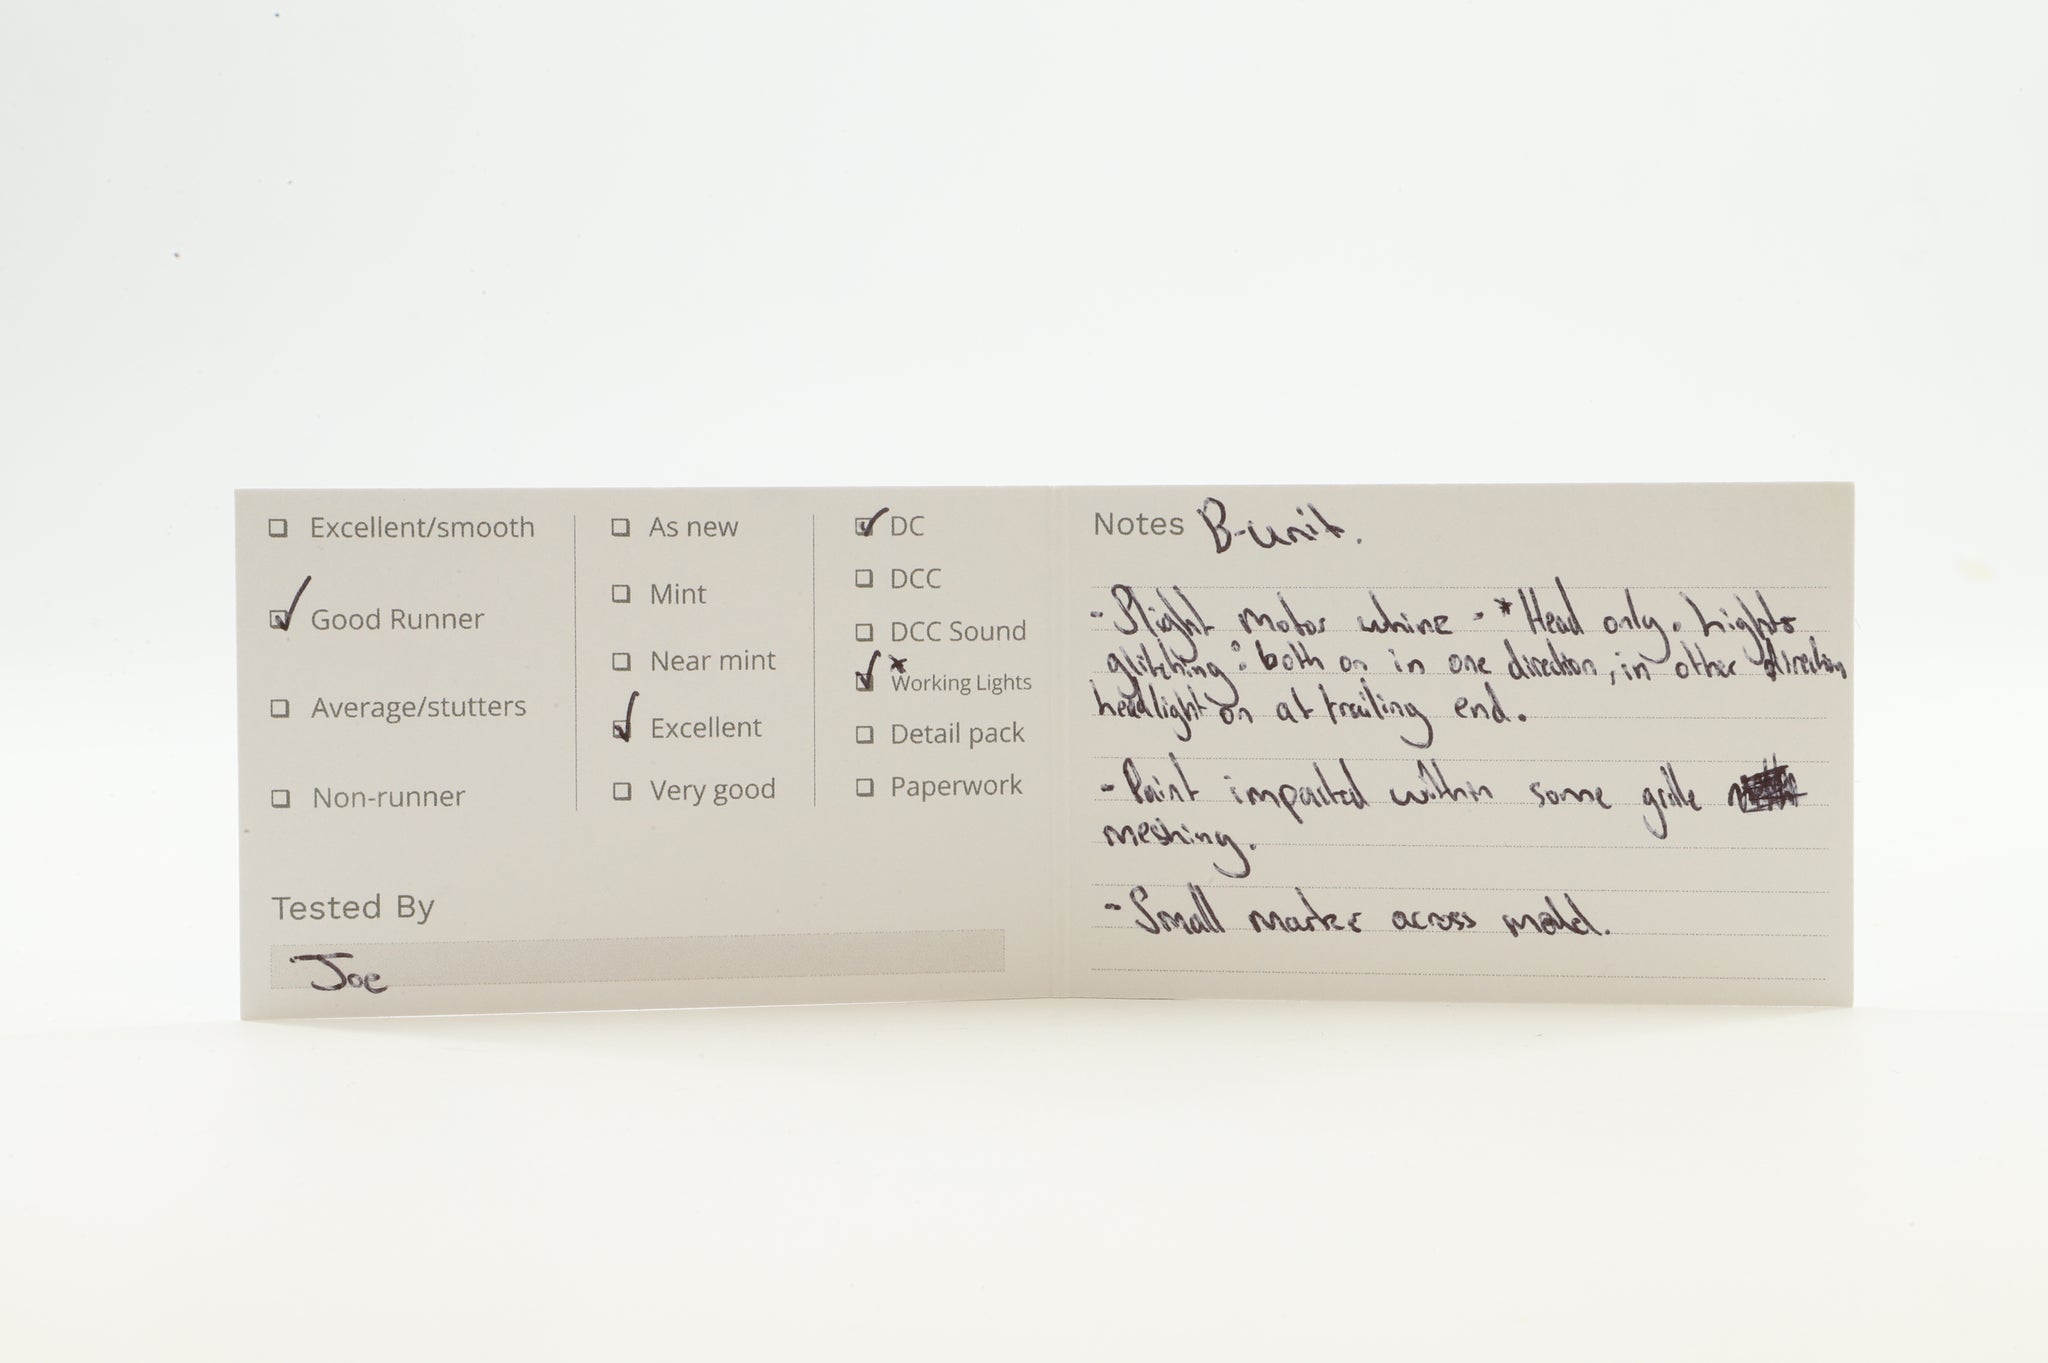 Excellent/smooth
Good Runner
Average/stutters
Non-runner
As new
Mint
Near mint
Excellent
Very good
DC
DCC
DCC Sound
*
Working Lights
Detail pack
Paperwork
Tested By
Joe
Notes B-unit.
- Slight motor whine - *Head only. Lights
glitching: both on in one direction, in other direction
headlight on at trailing end.
- Paint impacted within some grille
meshing.
- Small marks across model.